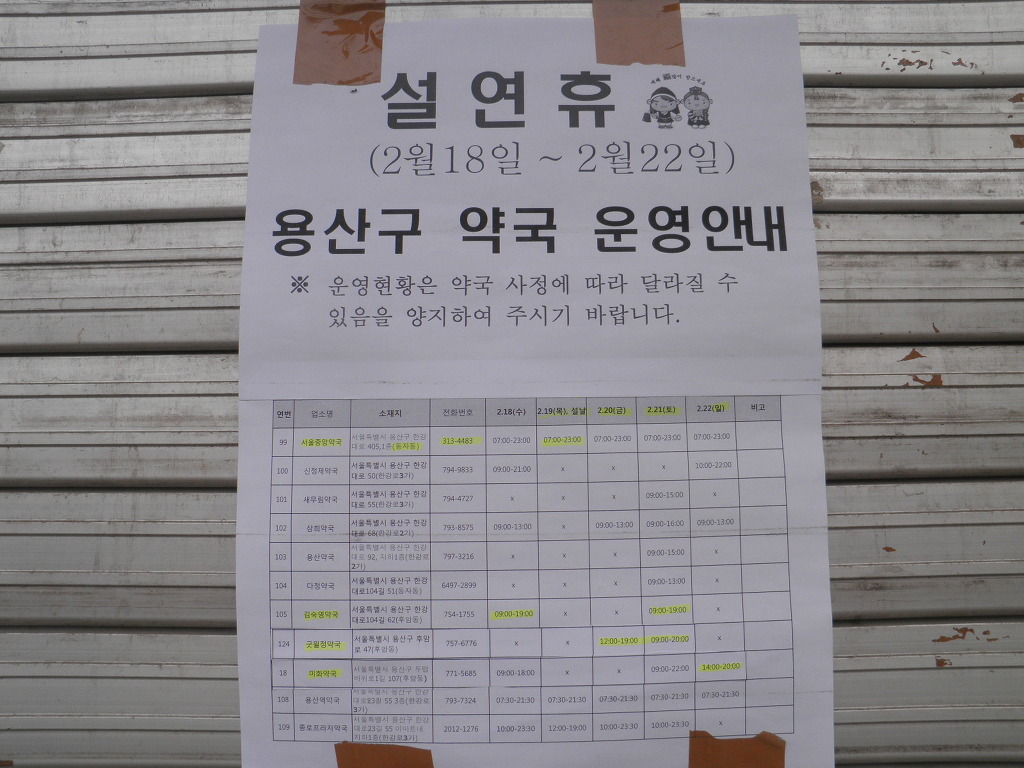 설 연 휴
(2월18일 ~ 2월22일)
용산구 약국 운영안내
※ 운영현황은 약국 사정에 따라 달라질 수
있음을 양지하여 주시기 바랍니다.
연번 업소명 소재지 전화번호 2.18(수) 2.19(목), 설날 2.20(금) 2.21(토) 2.22(일) 비고
99 서울중앙약국 서울특별시 용산구 한강 313-4483 07:00-23:00 07:00-23:00 07:00-23:00 07:00-23:00 07:00-23:00
대로 405,1층(동자동)
100 신정제약국 서울특별시 용산구 한강 794-9833 09:00-21:00 x x x 10:00-22:00
대로 50(한강로3가)
101 새우림약국 서울특별시 용산구 한강 794-4727 x x x 09:00-15:00 x
대로 55(한강로3가)
102 삼희약국 서울특별시 용산구 한강 793-8575 09:00-13:00 x 09:00-13:00 09:00-16:00 09:00-13:00
대로 68(한강로2가)
103 용산약국 서울특별시 용산구 한강 797-3216 x x x 09:00-15:00 x
대로 92, 지하1층(한강로
2가)
104 다정약국 서울특별시 용산구 한강 6497-2899 x x x 09:00-13:00 x
대로104길 51(동자동)
105 김숙영약국 서울특별시 용산구 한강 754-1755 09:00-19:00 x x 09:00-19:00 x
대로104길 62(후암동)
124 굿월정약국 서울특별시 용산구 후암 757-6776 x x 12:00-19:00 09:00-20:00 x
로 47(후암동)
18 미화약국 서울특별시 용산구 두텁 771-5685 09:00-18:00 x x 09:00-22:00 14:00-20:00
바위로1길 107(후암동)
108 용산역약국 서울특별시 용산구 한강 793-7324 07:30-21:30 07:30-21:30 07:30-21:30 07:30-21:30 07:30-21:30
대로23길 55 3층(한강로
3가)
109 종로프라자약국 서울특별시 용산구 한강 2012-1276 10:00-23:30 12:00-19:00 10:00-23:30 10:00-23:30 x
대로23길 55 이마트내
지하1층(한강로3가)